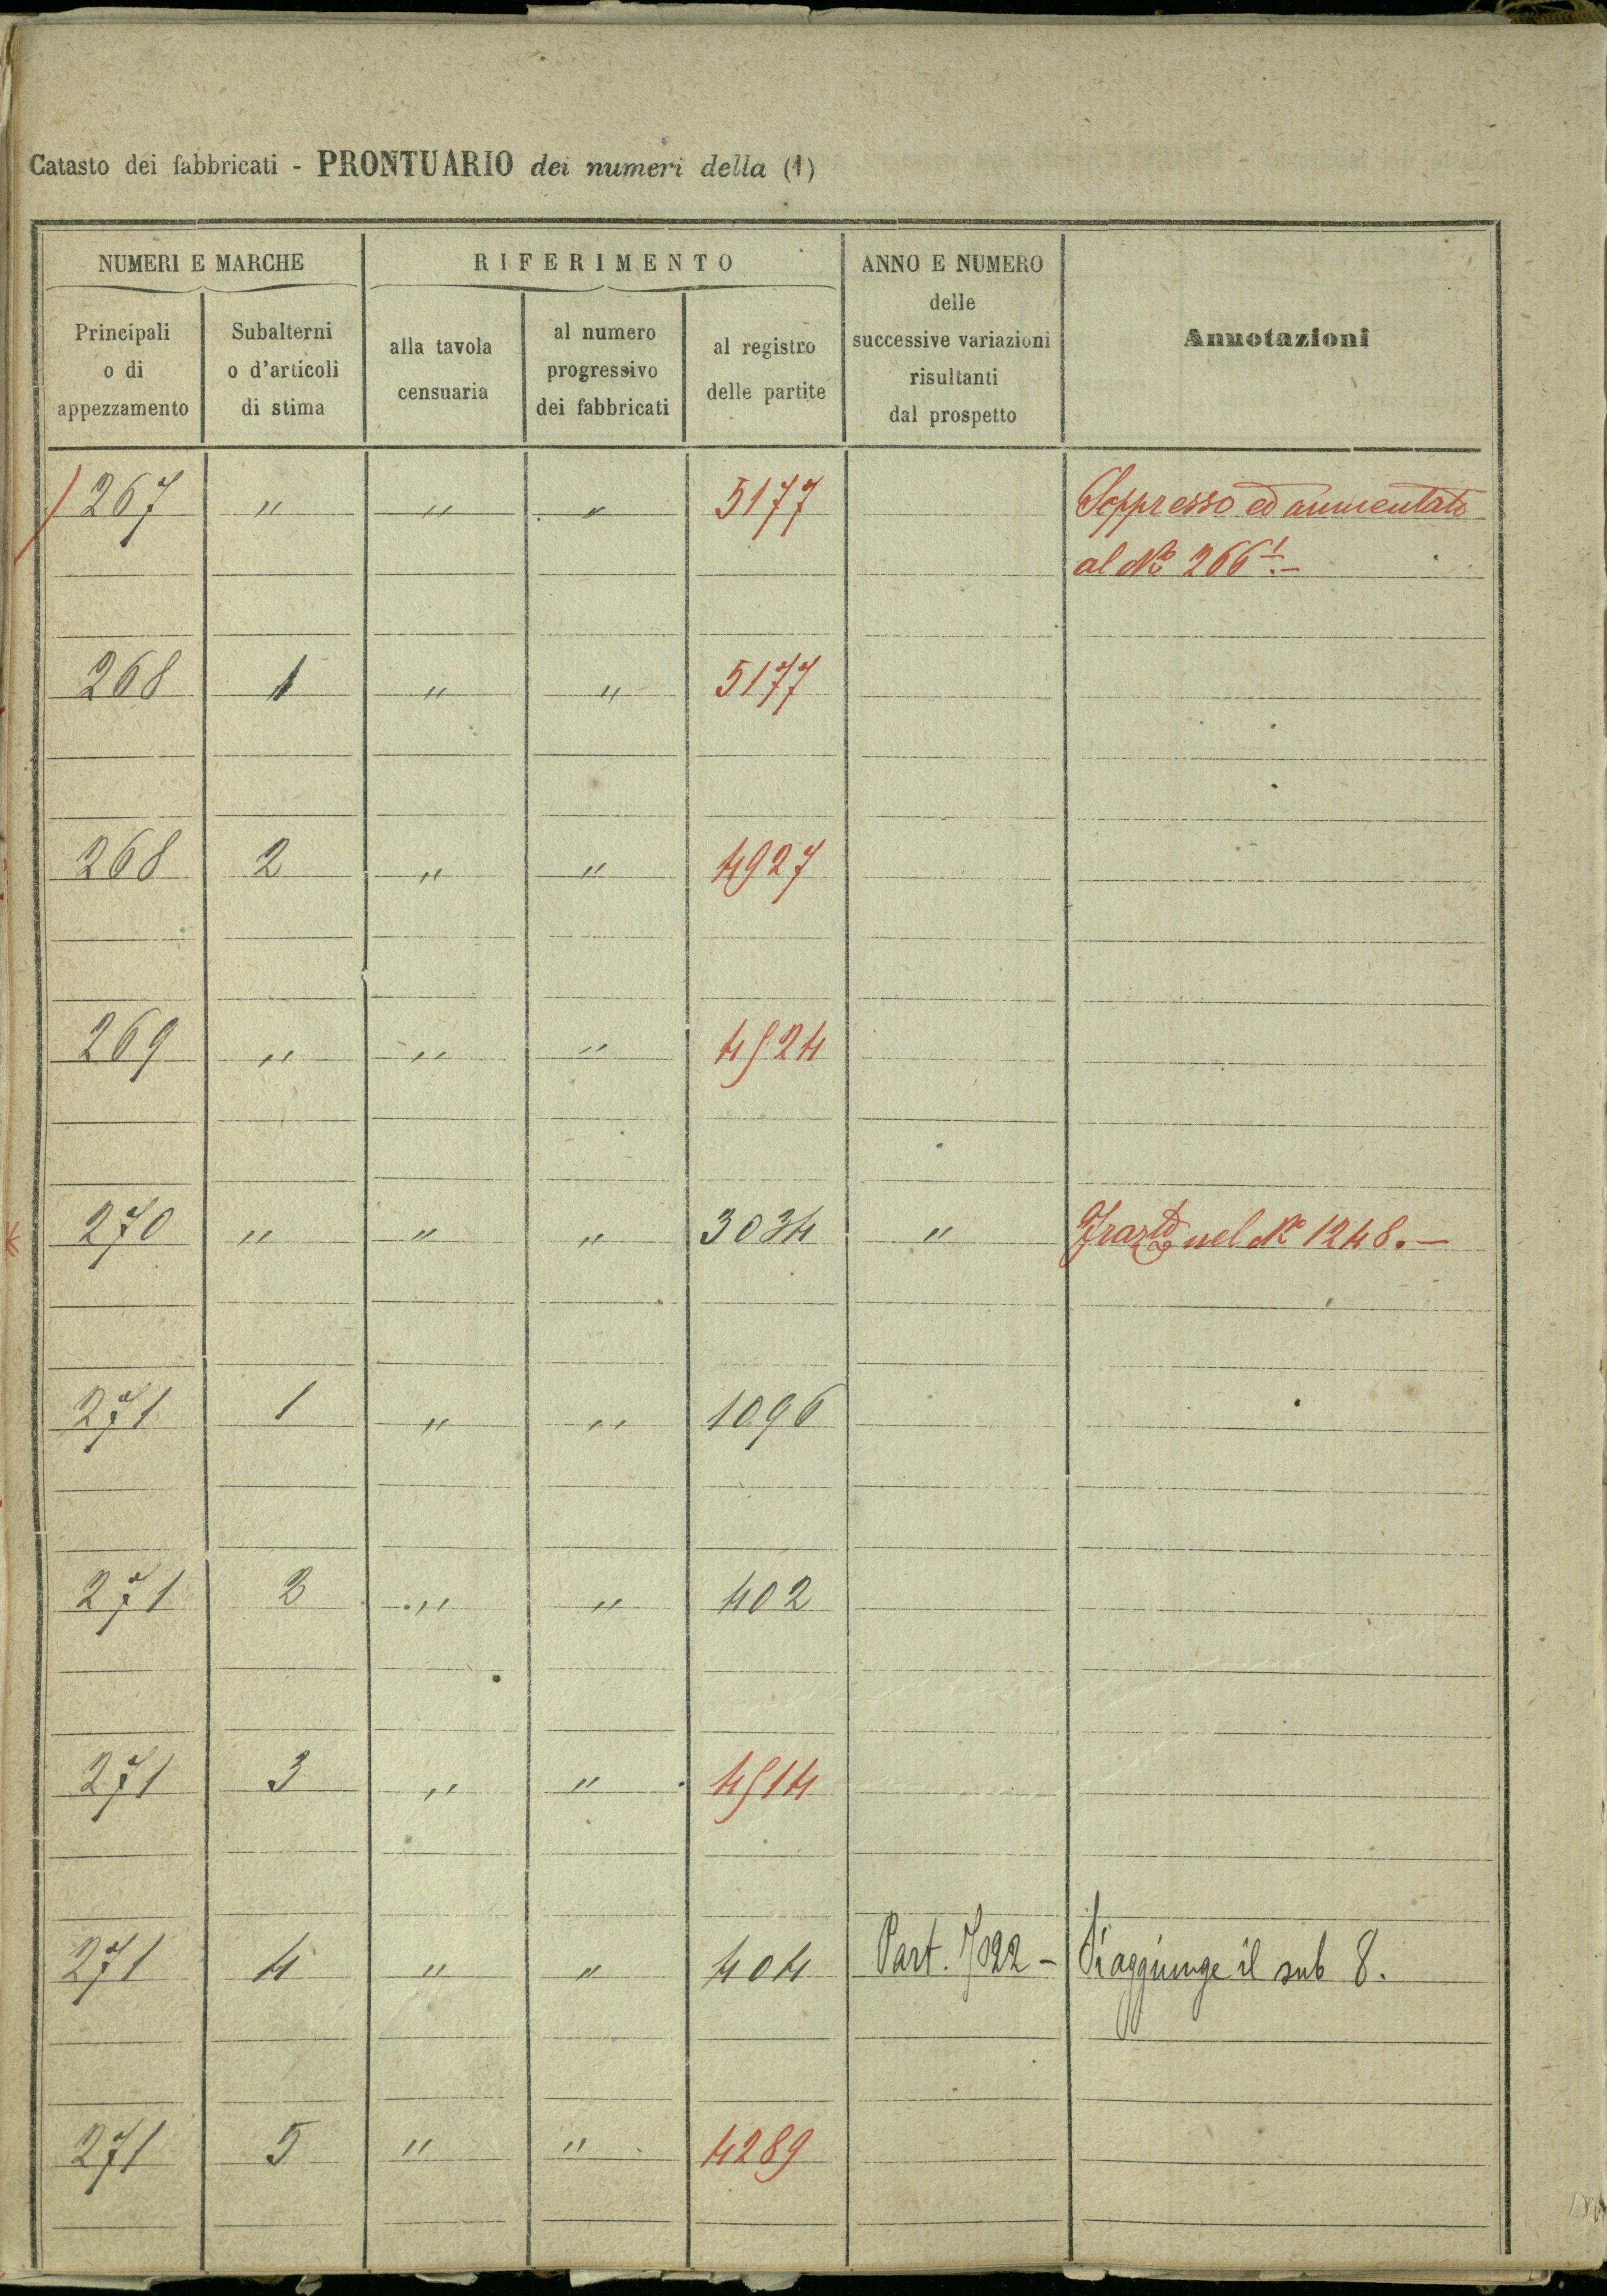 Catasto dei fabbricati - PRONTUARIO dei numeri della (1)
NUMERI E MARCHE
RIFERIMENTO
ANNO E NUMERO
delle
successive variazioni
risultanti
dal prospetto
Annotazioni
Principali
o di
appezzamento
Subalterni
o d'articoli
di stima
alla tavola
censuaria
al numero
progressivo
dei fabbricati
al registro
delle partite
267 " " " 5177 Soppresso ed aumentato
al Nº 266 1.-
268 1 " " 5177
268 2 " " 4927
269 " " " 4924
270 " " " 3034 " nel Nº 1248.-
271 1 " " 1096
271 2 " " 402
271 3 " " 4914
271 4 " " 404 Part. 7022 - Si aggiunge il sub 8.
271 5 " " 4289